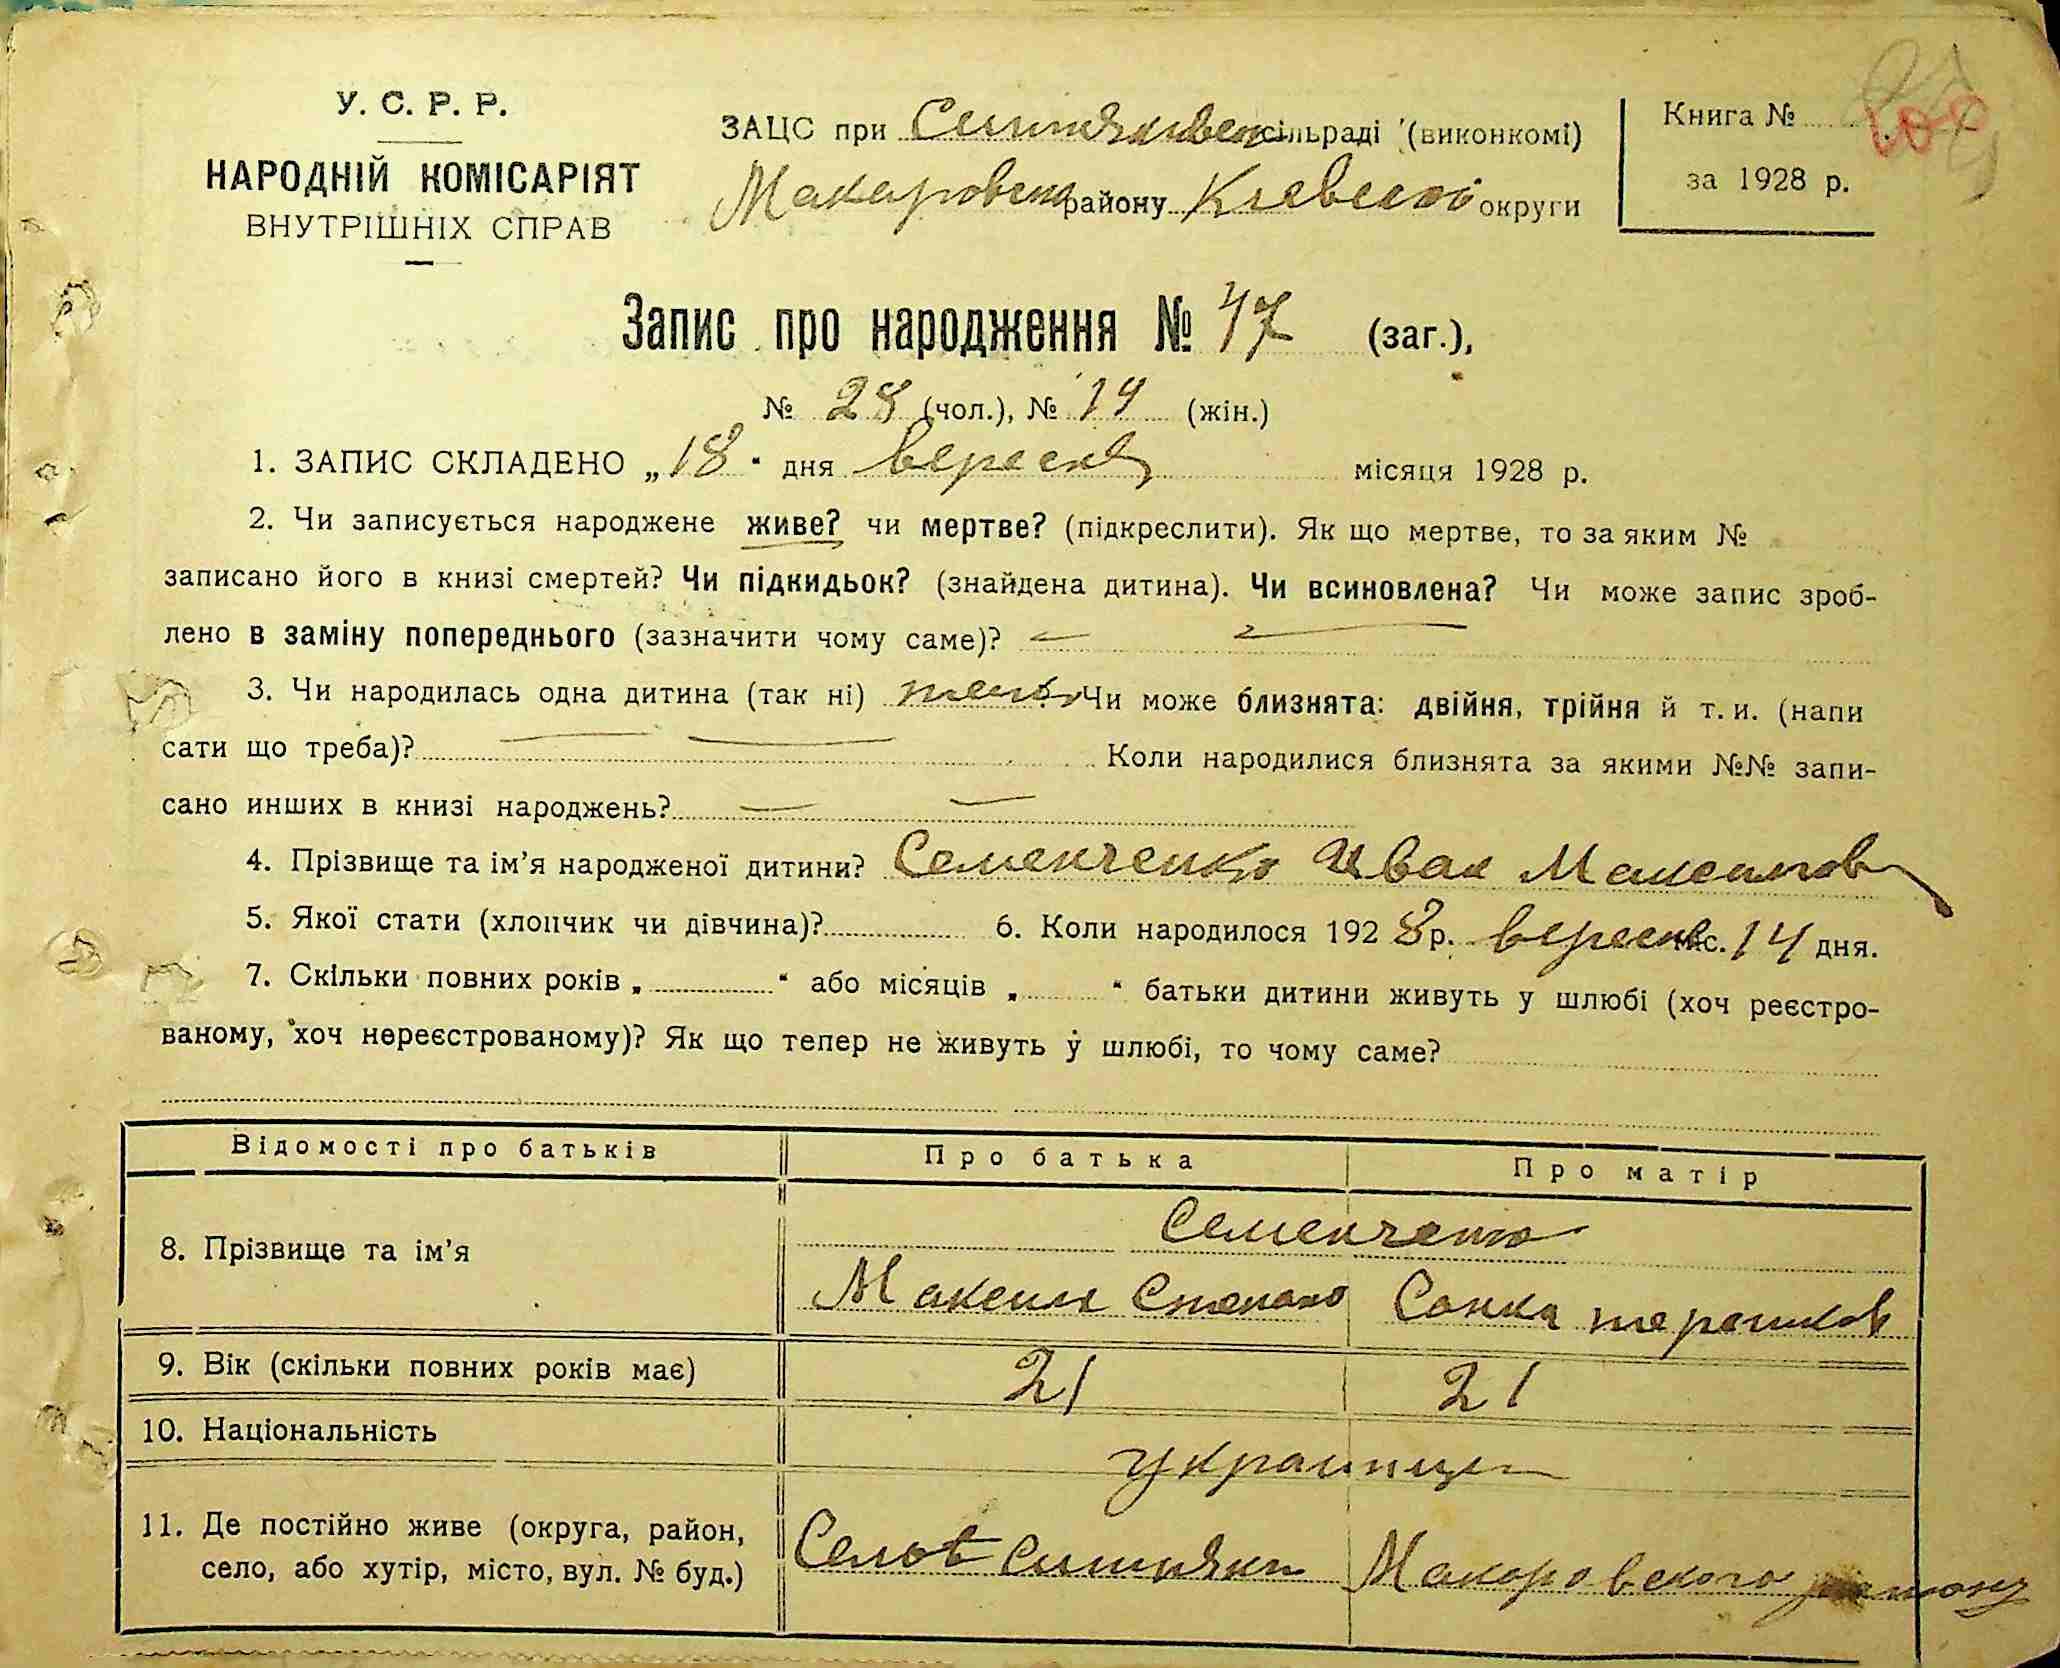 У. С. Р. Р.
НАРОДНІЙ КОМІСАРІЯТ
ВНУТРІШНІХ СПРАВ
ЗАЦС при Ситняковск сільраді (виконкомі)
Макаровск району Киевской округи
Книга №
за 1928 р.
Запис про народження № 47 (заг.),
№ 28 (чол.), № 19 (жін.)
1. ЗАПИС СКЛАДЕНО „18“ дня вересня місяця 1928 р.
2. Чи записується народжене живе? чи мертве? (підкреслити). Як що мертве, то за яким №
записано його в книзі смертей? Чи підкидьок? (знайдена дитина). Чи всиновлена? Чи може запис зроб-
лено в заміну попереднього (зазначити чому саме)? —
3. Чи народилась одна дитина (так ні) Чи може близнята: двійня, трійня й т. и. (напи
сати що треба)? — — Коли народилися близнята за якими №№ запи-
сано инших в книзі народжень? — —
4. Прізвище та ім’я народженої дитини? Семенченко Иван Максимов
5. Якої стати (хлопчик чи дівчина)? 6. Коли народилося 1928 р. вересня міс. 14 дня.
7. Скільки повних років „ “ або місяців „ “ батьки дитини живуть у шлюбі (хоч реєстро-
ваному, хоч нереєстрованому)? Як що тепер не живуть у шлюбі, то чому саме?
Відомості про батьків Про батька Про матір
8. Прізвище та ім’я Семенченко
Максим Степано Сонка терешков
9. Вік (скільки повних років має) 21 21
10. Національність украинцы
11. Де постійно живе (округа, район,
село, або хутір, місто, вул. № буд.) Село Ситняки Макаровского району